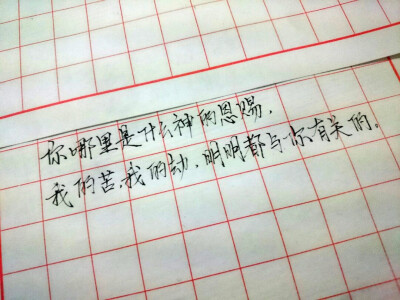 你哪里是什么神的恩赐，
我的苦、我的劫，明明都与你有关的。